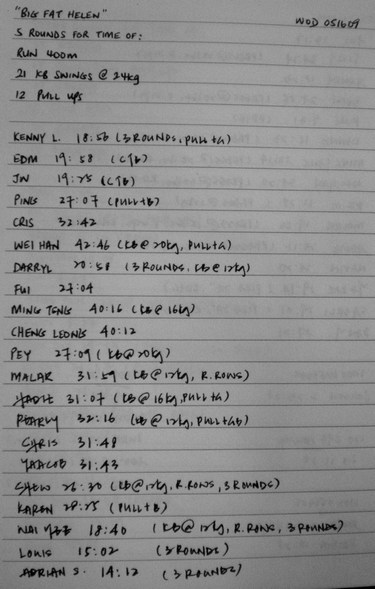 "BIG FAT HELEN" WOD 051609
5 ROUNDS FOR TIME OF:
RUN 400m
21 KB SWINGS @ 24kg
12 PULL UPS
KENNY L. 18:56 (3 ROUNDS, PULL+G)
EDM 19:58 (CTB)
JW 19:25 (CTB)
PING 27:07 (PULL+B)
CRIS 32:42
WEI HAN 42:46 (KB @ 20kg, PULL+G)
DARRYL 20:58 (3 ROUNDS, KB @ 12kg)
FUI 27:04
MING TENG 40:16 (KB @ 16kg)
CHENG LEONG 40:12
PEY 27:09 (KB @ 20kg)
MALAR 31:59 (KB @ 12kg, R. ROWS)
31:07 (KB @ 16kg, PULL+G)
PEARLY 32:16 (KB @ 12kg, PULL+GB)
CHRIS 31:48
YAACOB 31:43
CHEW 26:30 (KB @ 12kg, R. ROWS, 3 ROUNDS)
KAREN 28:25 (PULL+B)
WAI 18:40 (KB @ 12kg, R. ROWS, 3 ROUNDS)
LOUIS 15:02 (3 ROUNDS)
ADRIAN S. 14:12 (3 ROUNDS)